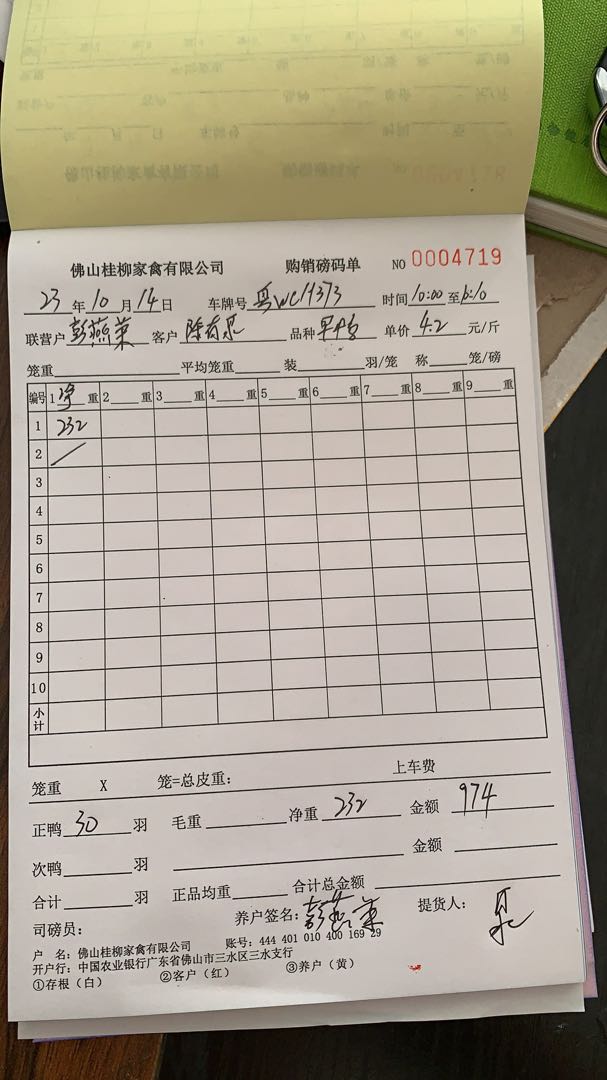 佛山桂柳家禽有限公司 购销磅码单 NO 0004719
23年10月14日 车牌号 粤WC1373 时间10:00至
联营户彭燕 客户 陈 品种 单价4.2元/斤
笼重 平均笼重 装 羽/笼 称 笼/磅
编号 1净重 2重 3重 4重 5重 6重 7重 8重 9重
1 232
2 /
3
4
5
6
7
8
9
10
小计
笼重 X 笼=总皮重: 上车费
正鸭 30 羽 毛重 净重 232 金额 974
次鸭 羽 金额
合计 羽 正品均重 合计总金额
司磅员: 养户签名: 彭燕 提货人:
户 名: 佛山桂柳家禽有限公司 账号: 444 401 010 400 169 29
开户行: 中国农业银行广东省佛山市三水区三水支行
①存根(白) ②客户(红) ③养户(黄)